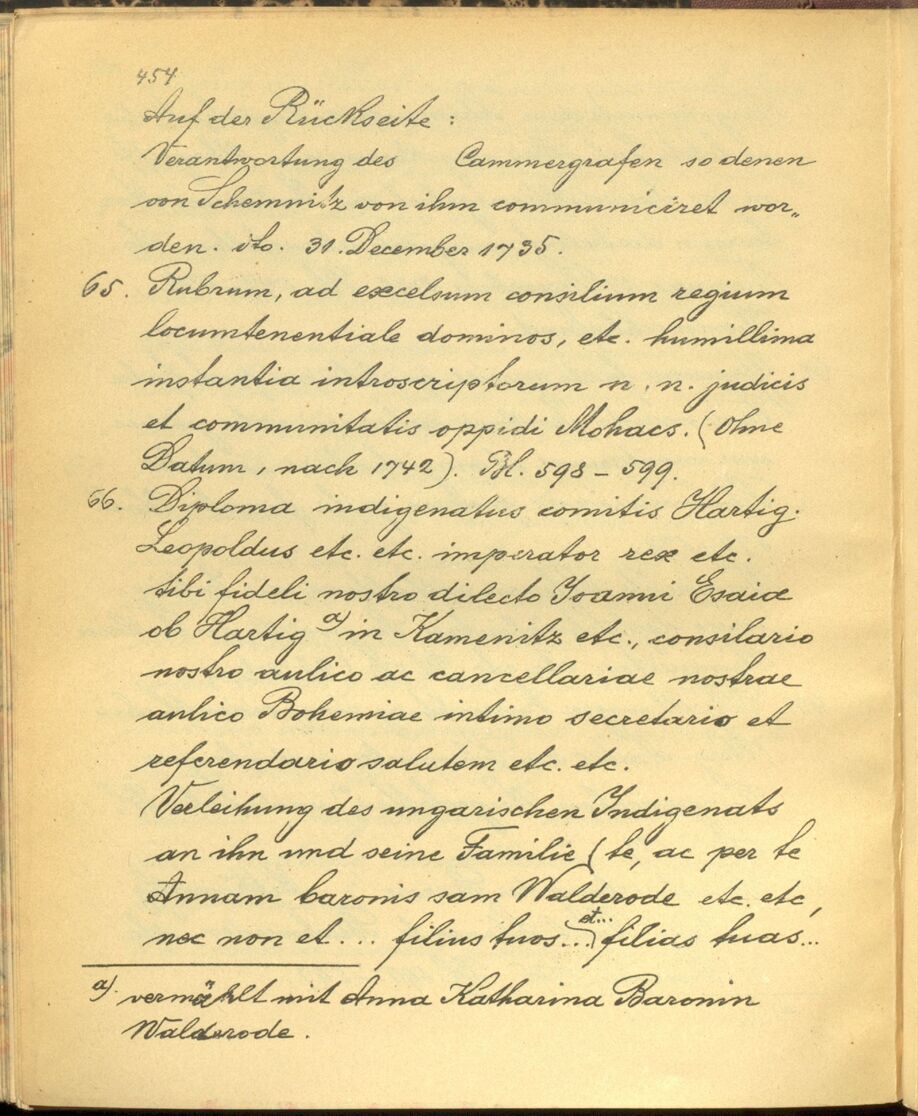 454
Auf der Rückseite :
Verantwortung des Cammergrafen so denen
von Schemnitz von ihm communiciret wor„
den. dto. 31. December 1735.
65. Rubrum, ad excelsum consilium regium
locumtenentiale dominos, etc. humillima
instantia introscriptorum n. n. judicis
et communitatis oppidi Mohacs. (Ohne
Datum, nach 1742). Bl. 598 – 599.
66. Diploma indigenatus comitis Hartig.
Leopoldus etc. etc. imperator rex etc.
tibi fideli nostro dilecto Joanni Esaiae
ob Hartig a) in Kamenitz etc., consilario
nostro aulico ac cancellariae nostrae
aulico Bohemiae intimo secretario et
referendario salutem etc. etc.
Verleihung des ungarischen Indigenats
an ihn und seine Familie (te, ac per te
Annam baronis sam Walderode etc. etc,
nec non et ... filius tuos ... et... filias tuas...
a). vermählt mit Anna Katharina Baronin
Walderode.